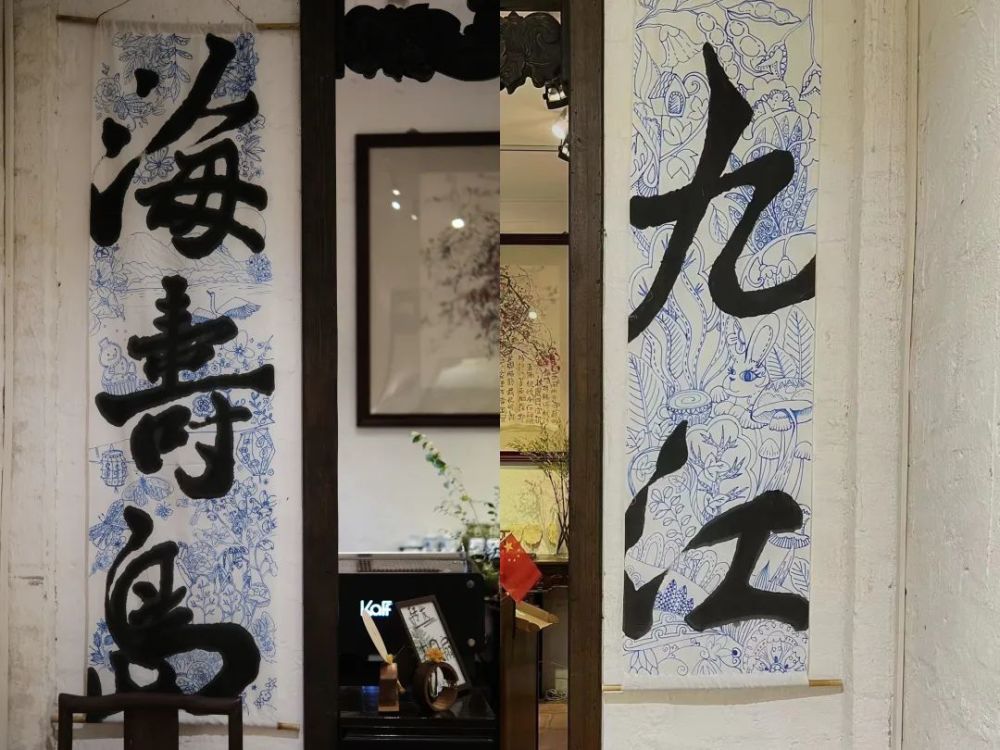 海壽島
九江
Kaff